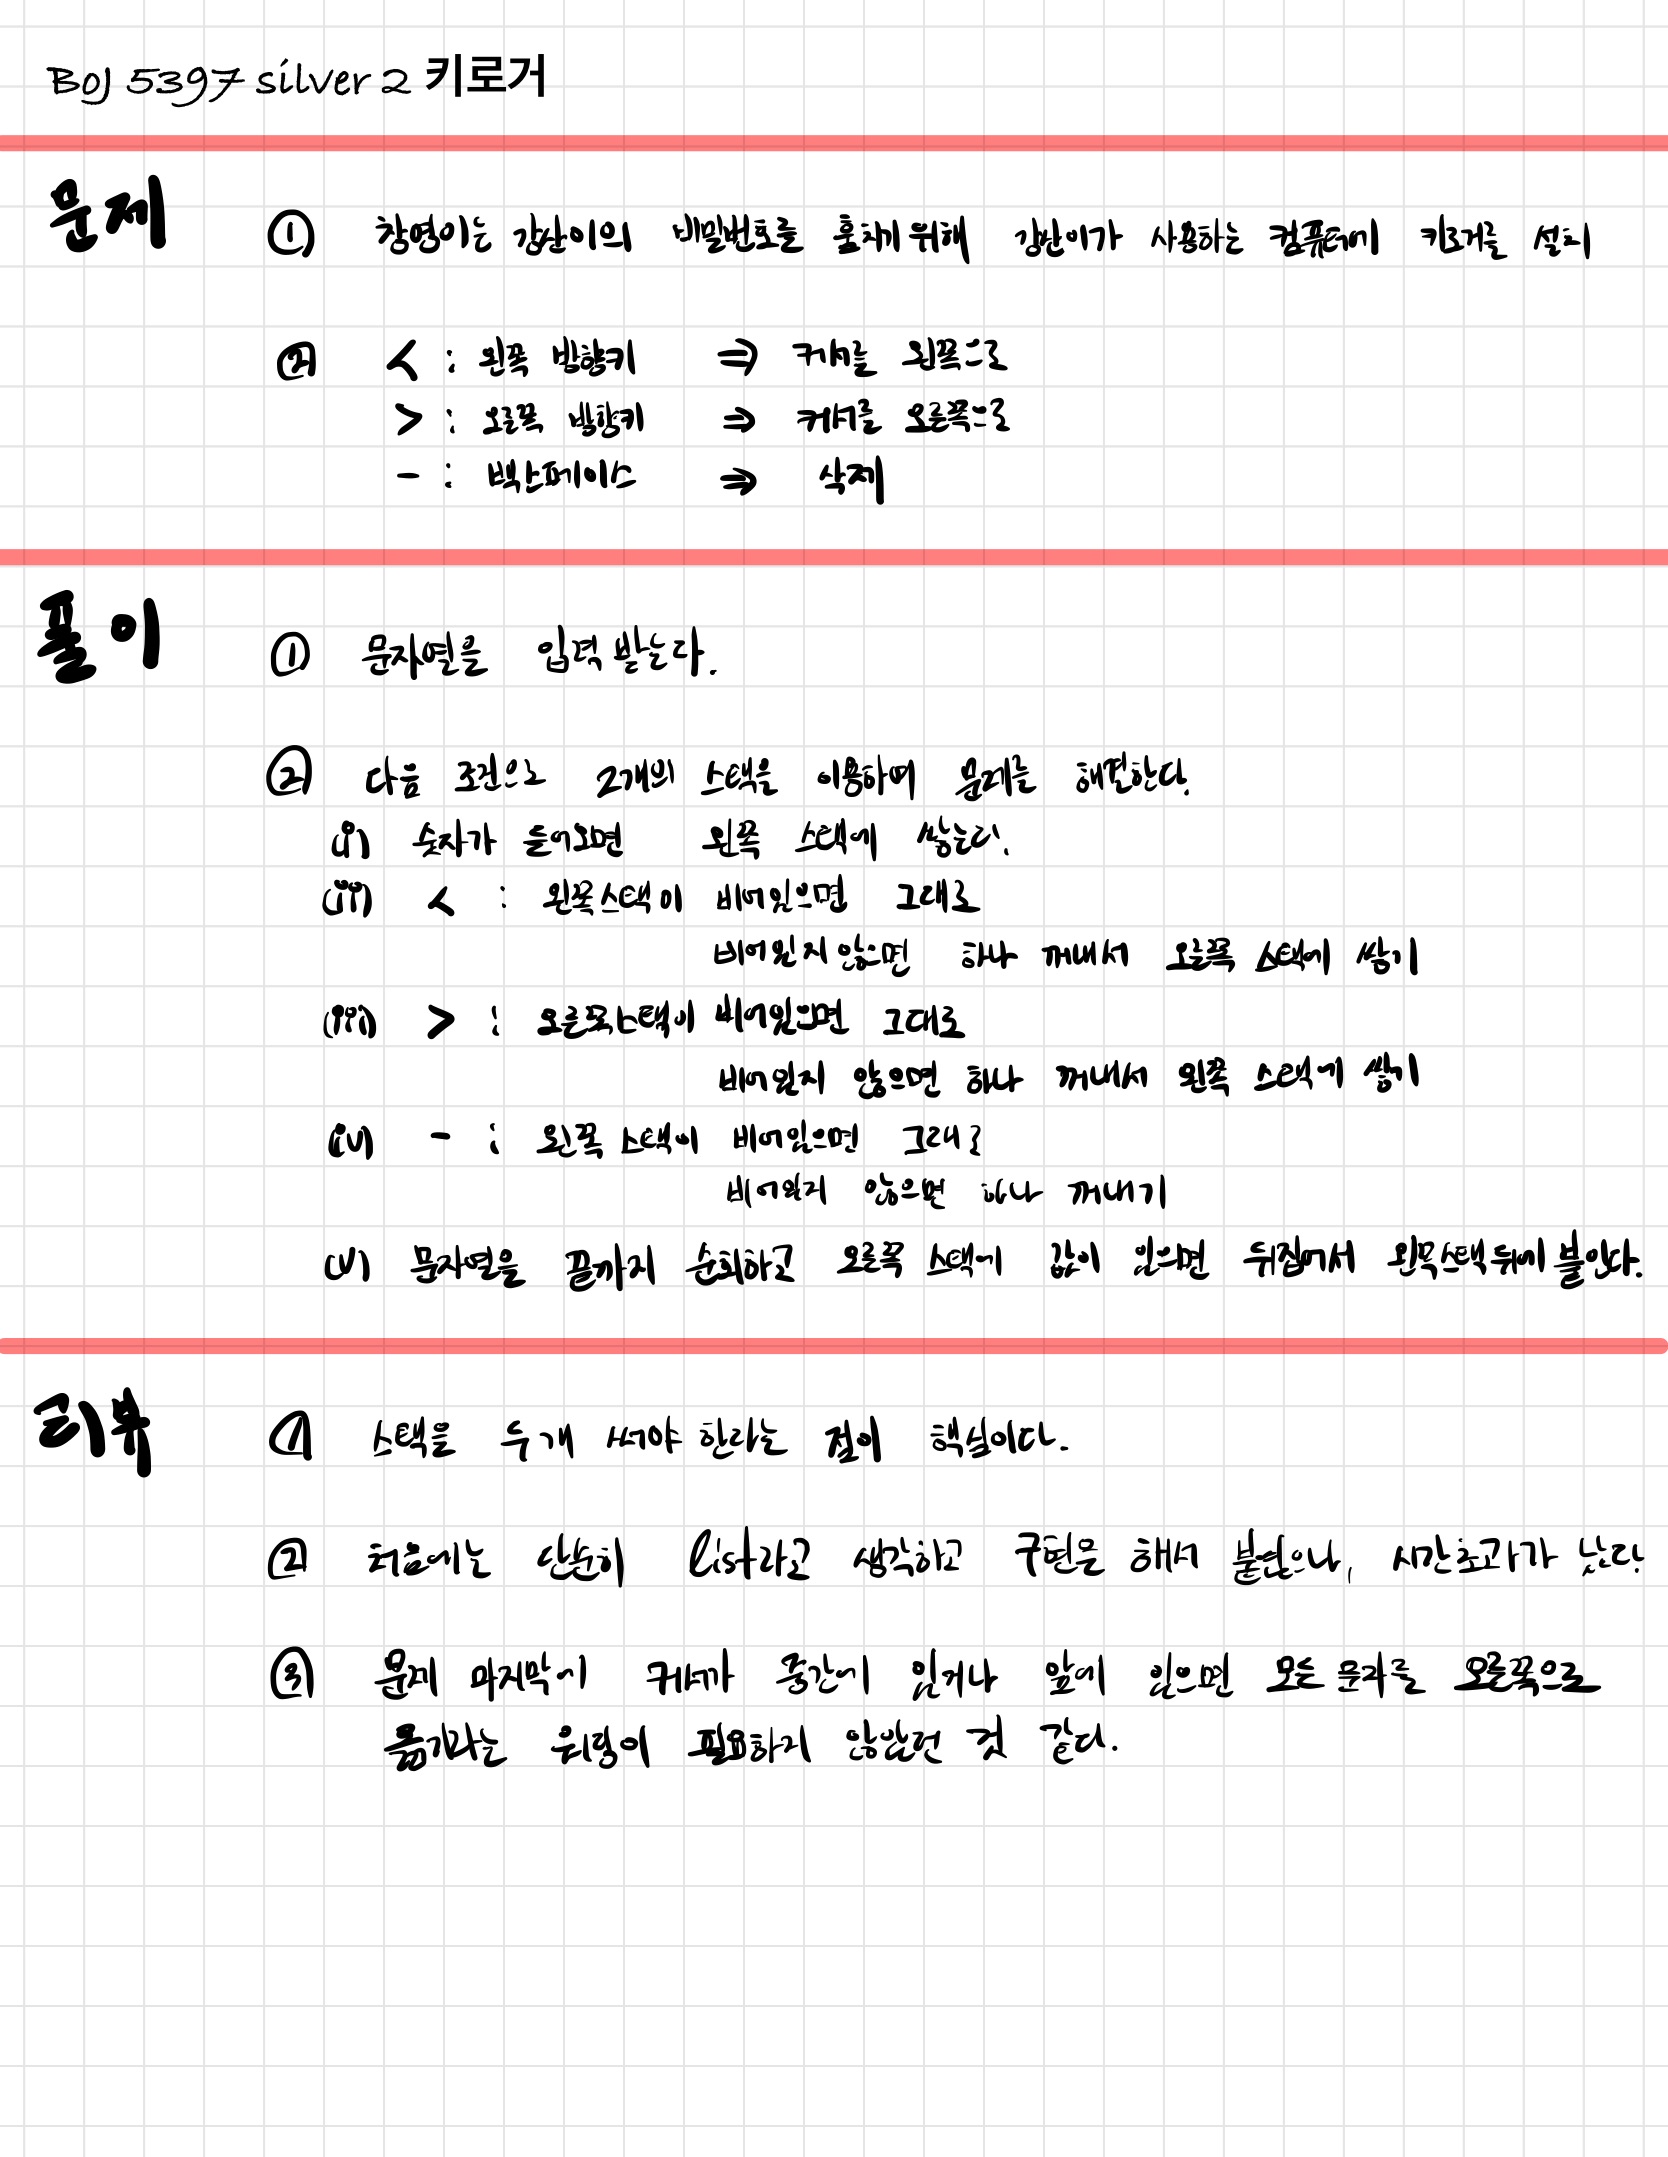 BOJ 5397 silver 2 키로거
문제
① 창영이는 강산이의 비밀번호를 훔치기 위해 강산이가 사용하는 컴퓨터에 키로거를 설치
② < : 왼쪽 방향키 ⇒ 커서를 왼쪽으로
> : 오른쪽 방향키 ⇒ 커서를 오른쪽으로
- : 백스페이스 ⇒ 삭제
풀이
① 문자열을 입력 받는다.
② 다음 조건으로 2개의 스택을 이용하여 문제를 해결한다.
(i) 숫자가 들어오면 왼쪽 스택에 쌓는다.
(ii) < : 왼쪽스택이 비어있으면 그대로
비어있지 않으면 하나 꺼내서 오른쪽 스택에 쌓기
(iii) > : 오른쪽스택이 비어있으면 그대로
비어있지 않으면 하나 꺼내서 왼쪽 스택에 쌓기
(iv) - : 왼쪽 스택이 비어있으면 그대로
비어있지 않으면 하나 꺼내기
(v) 문자열을 끝까지 순회하고 오른쪽 스택에 값이 있으면 뒤집어서 왼쪽스택 뒤에 붙인다.
리뷰
① 스택을 두개 써야 한라는 점이 핵심이다.
② 처음에는 단순히 list라고 생각하고 구현을 해서 풀었으나, 시간초과가 났다.
③ 문제 마지막에 커서가 중간에 있거나 앞에 있으면 모든 문자를 오른쪽으로
옮기라는 워딩이 필요하지 않았던 것 같다.